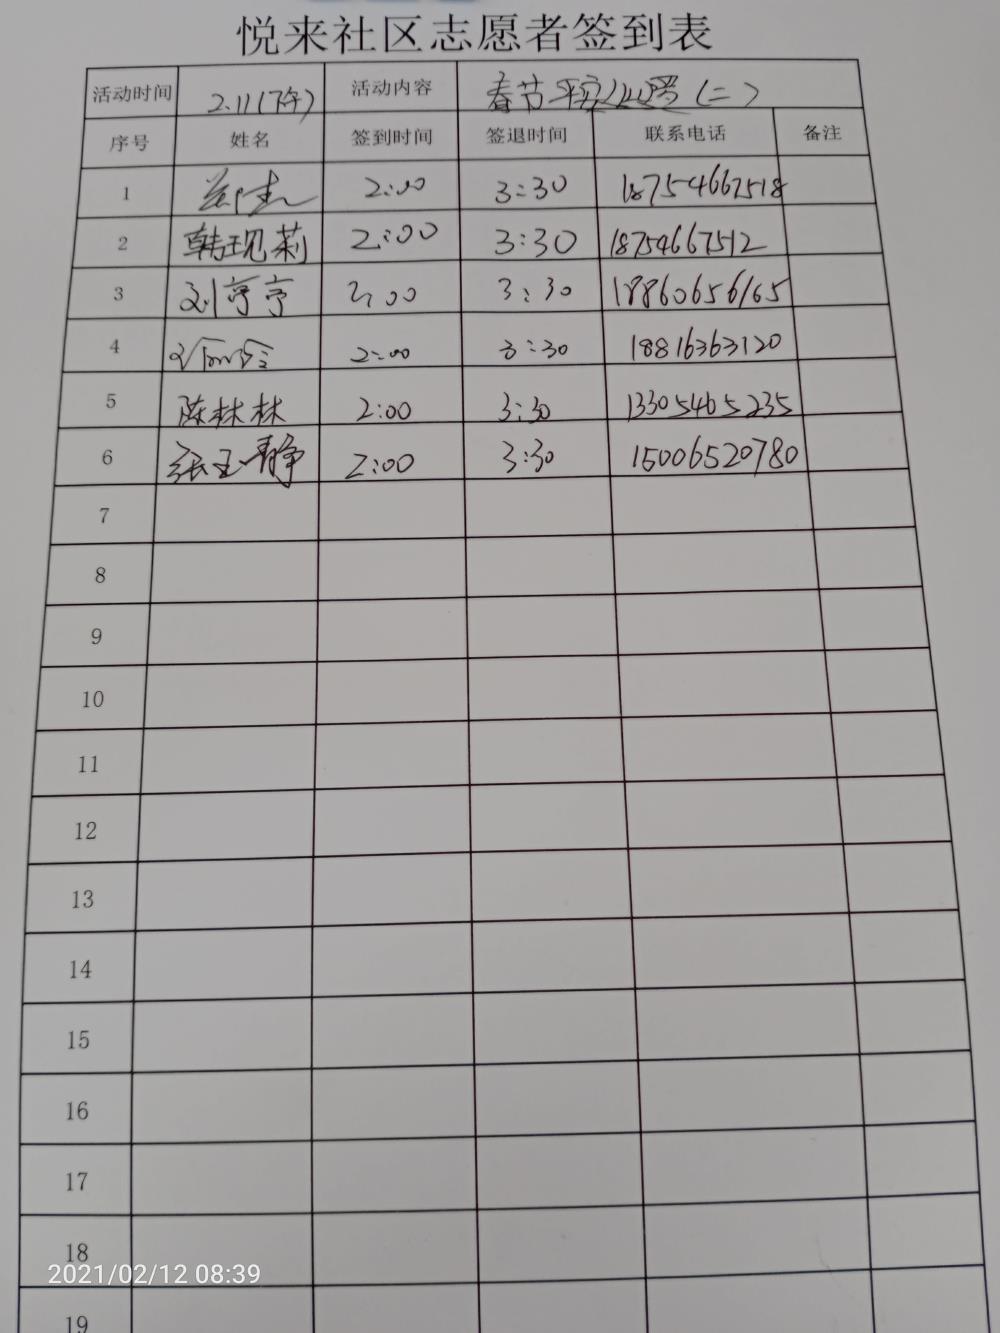 悦来社区志愿者签到表
活动时间 2.11(下午) 活动内容 春节平安 (二)
序号 姓名 签到时间 签退时间 联系电话 备注
1 2:00 3:30 18754667518
2 韩现莉 2:00 3:30 18754667512
3 刘亭亭 2:00 3:30 18860656165
4 2:00 3:30 18816363120
5 陈林林 2:00 3:30 13305465235
6 张玉静 2:00 3:30 15006520780
7
8
9
10
11
12
13
14
15
16
17
18
2021/02/12 08:39
19